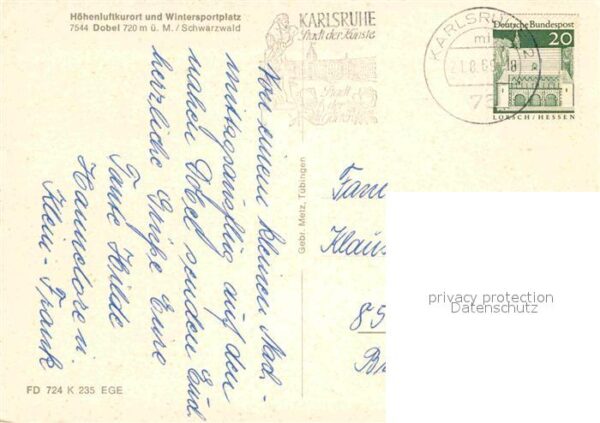 Höhenluftkurort und Wintersportplatz
7544 Dobel 720 m ü. M./Schwarzwald
KARLSRUHE
Stadt der Künste
Stadt
der
KARLSRUHE
mi
21.8.69-18
75
Deutsche Bundespost
20
LORSCH/HESSEN
Von einem kleinen Nach-
mittagsausflug auf den
nahen Dobel senden Euch
herzliche Grüße Eure
Tante Hilde
Hannelore u.
Klein-Frank
Gebr. Metz, Tübingen
Fam
Klaus
85
FD 724 K 235 EGE
privacy protection
Datenschutz